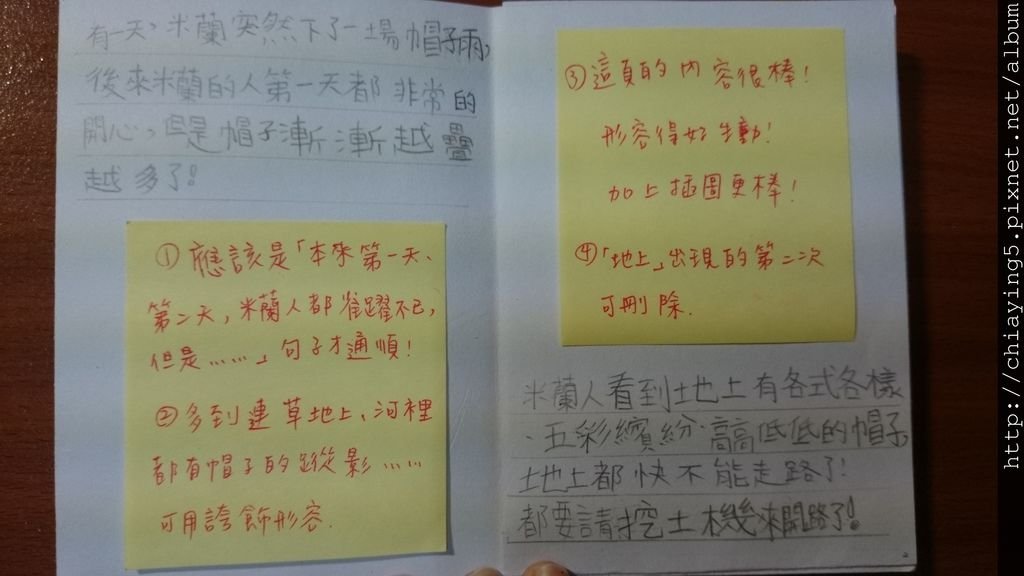 有一天，米蘭突然下了一場帽子雨，
後來米蘭的人第一天都非常的
開心，但是帽子漸漸越疊
越多了！
①應該是「本來第一天、
第二天，米蘭人都雀躍不已，
但是……」句子才通順！
②多到連草地上、河裡
都有帽子的蹤影……
可用誇飾形容.
③這頁的內容很棒！
形容得好生動！
加上插圖更棒！
④「地上」出現的第二次
可刪除.
米蘭人看到土地上有各式各樣
、五彩繽紛、高高低低的帽子，
地上都快不能走路了！
都要請挖土機來開路了！
2
http://chiaying5.pixnet.net/album